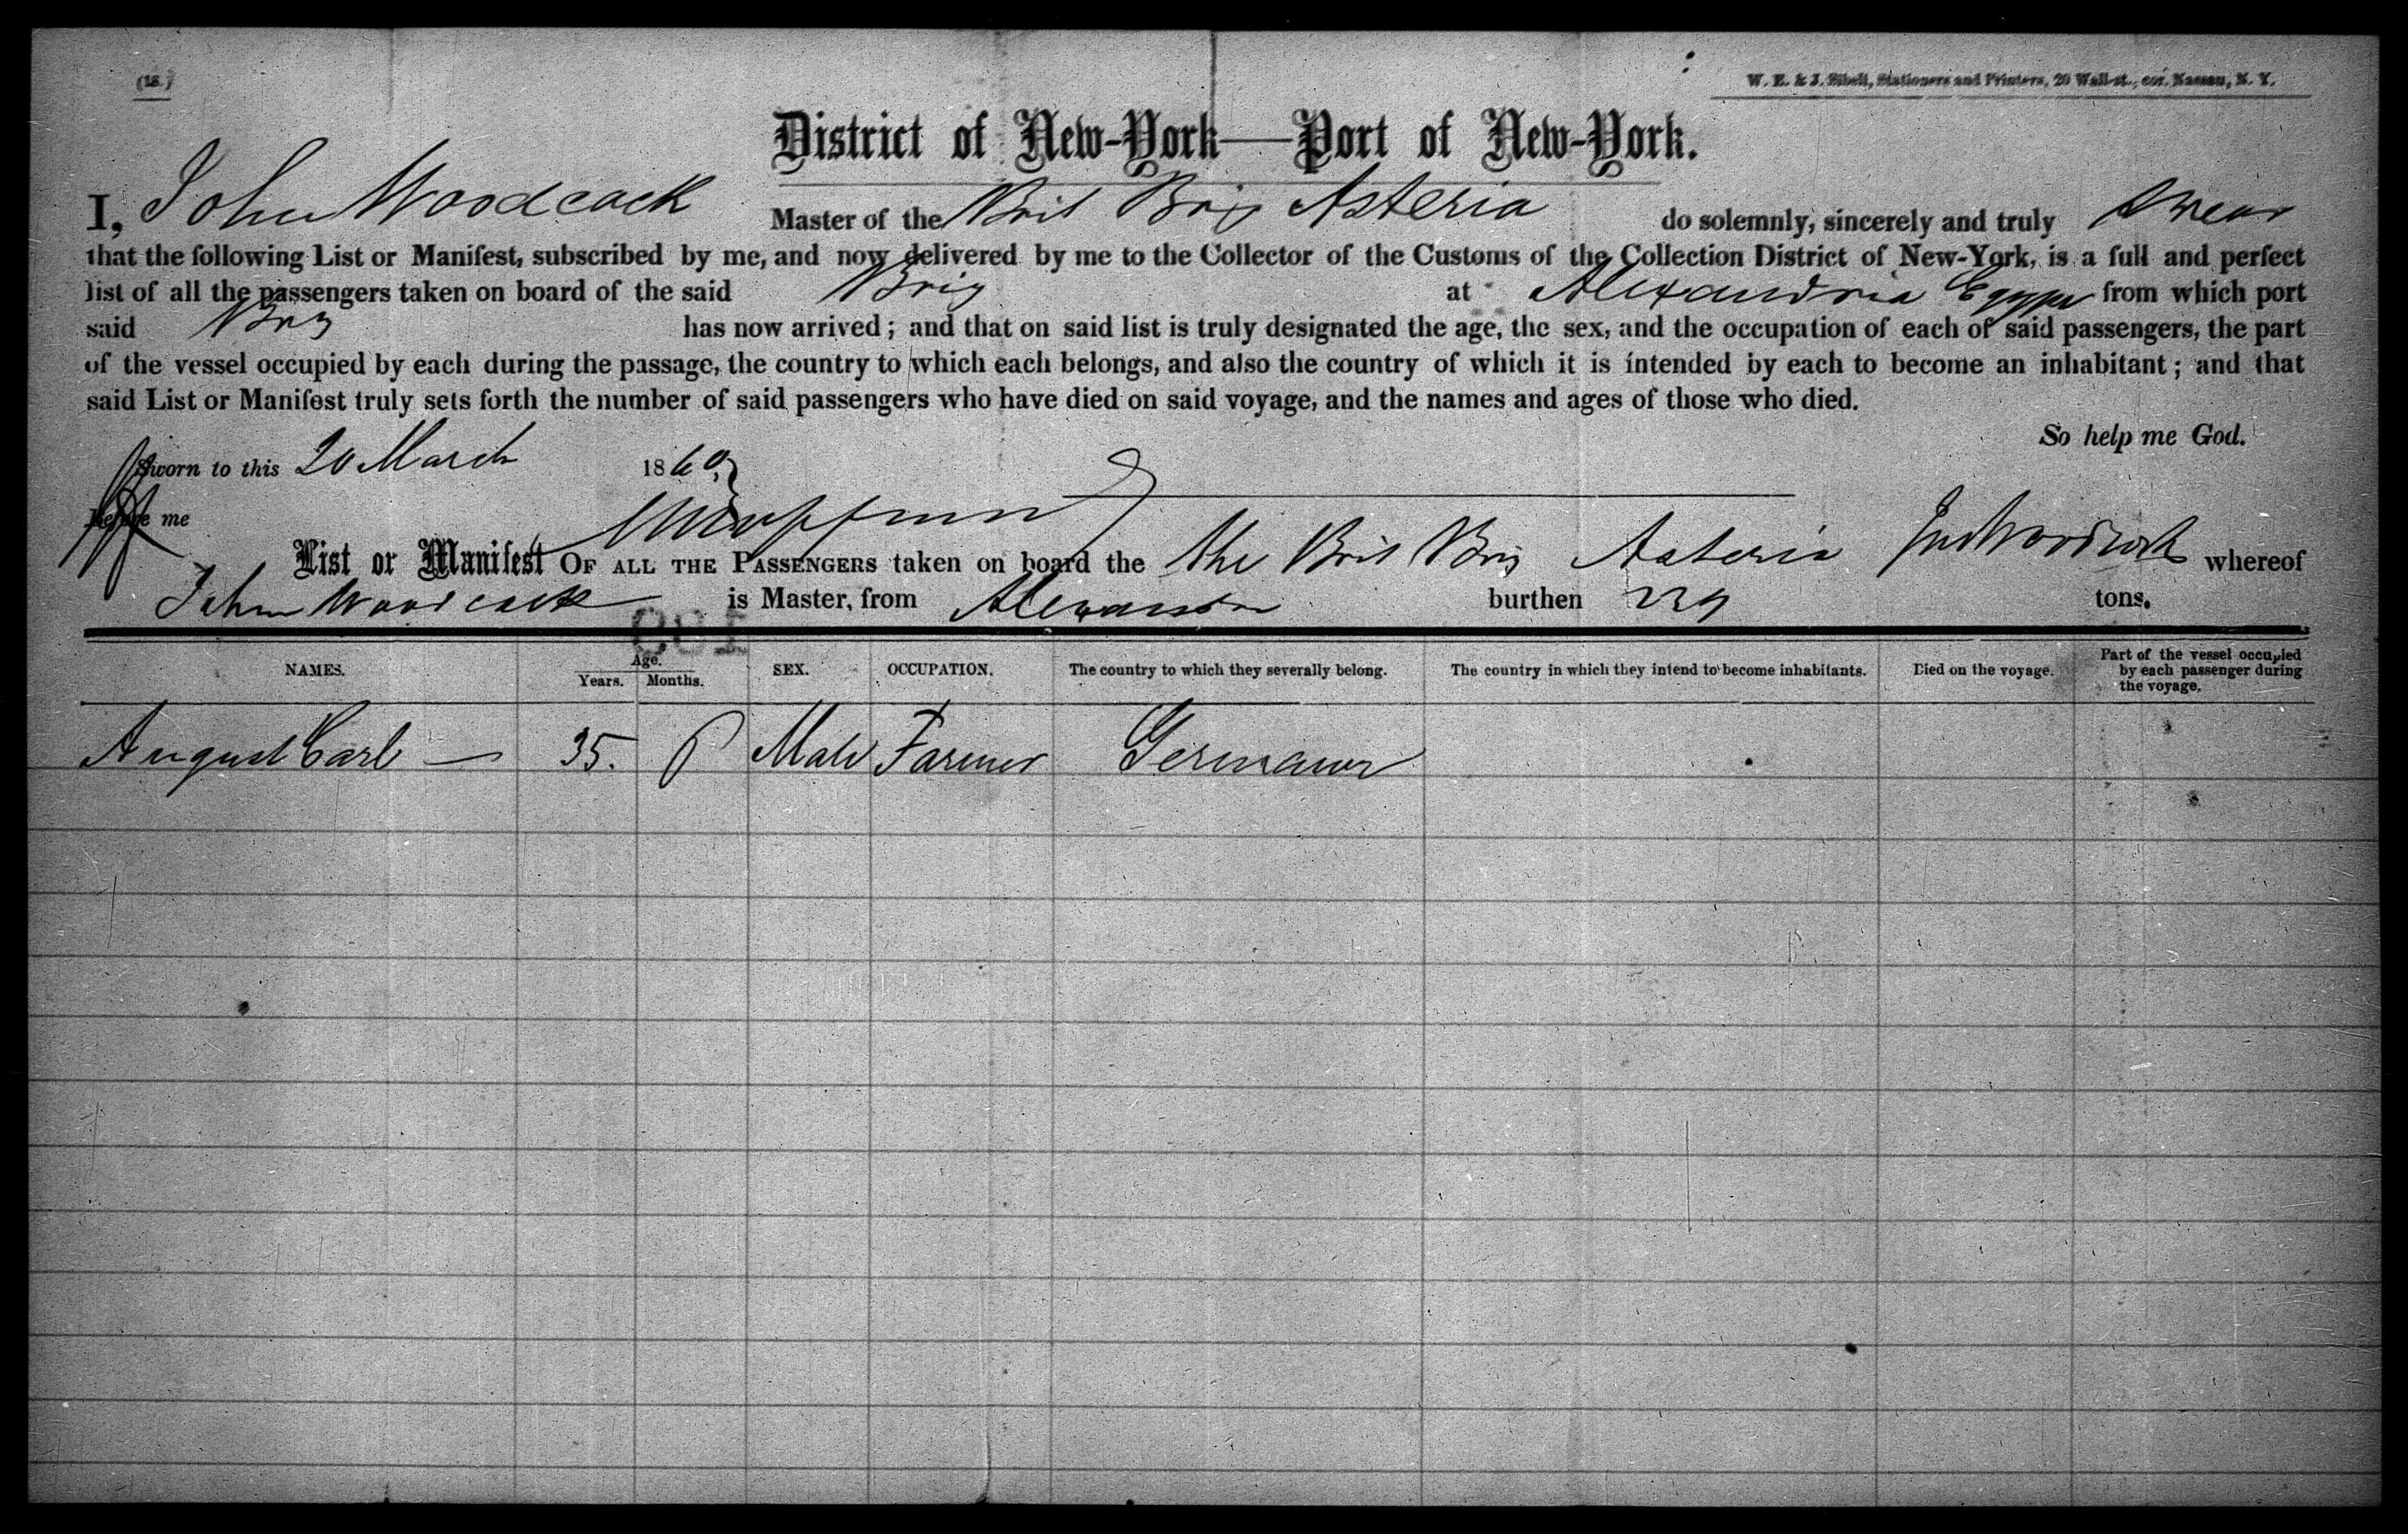 (18.)
W. E. & J. Sibell, Stationers and Printers, 20 Wall-st., cor. Nassau, N. Y.
District of New-York—Port of New-York.
I, John Woodcock Master of the Brit Brig Asteria do solemnly, sincerely and truly swear
that the following List or Manifest, subscribed by me, and now delivered by me to the Collector of the Customs of the Collection District of New-York, is a full and perfect
list of all the passengers taken on board of the said Brig at Alexandria Egypt from which port
said Brig has now arrived; and that on said list is truly designated the age, the sex, and the occupation of each of said passengers, the part
of the vessel occupied by each during the passage, the country to which each belongs, and also the country of which it is intended by each to become an inhabitant; and that
said List or Manifest truly sets forth the number of said passengers who have died on said voyage, and the names and ages of those who died.
So help me God.
Sworn to this 20 March 1860
Before me
Jno Woodcock
List or Manifest OF ALL THE PASSENGERS taken on board the the Brit Brig Asteria whereof
John Woodcock is Master, from Alexandria burthen 229 tons.
NAMES. Age. Years. Months. SEX. OCCUPATION. The country to which they severally belong. The country in which they intend to become inhabitants. Died on the voyage. Part of the vessel occupied by each passenger during the voyage.
August Carl — 35. Male Farmer Germany